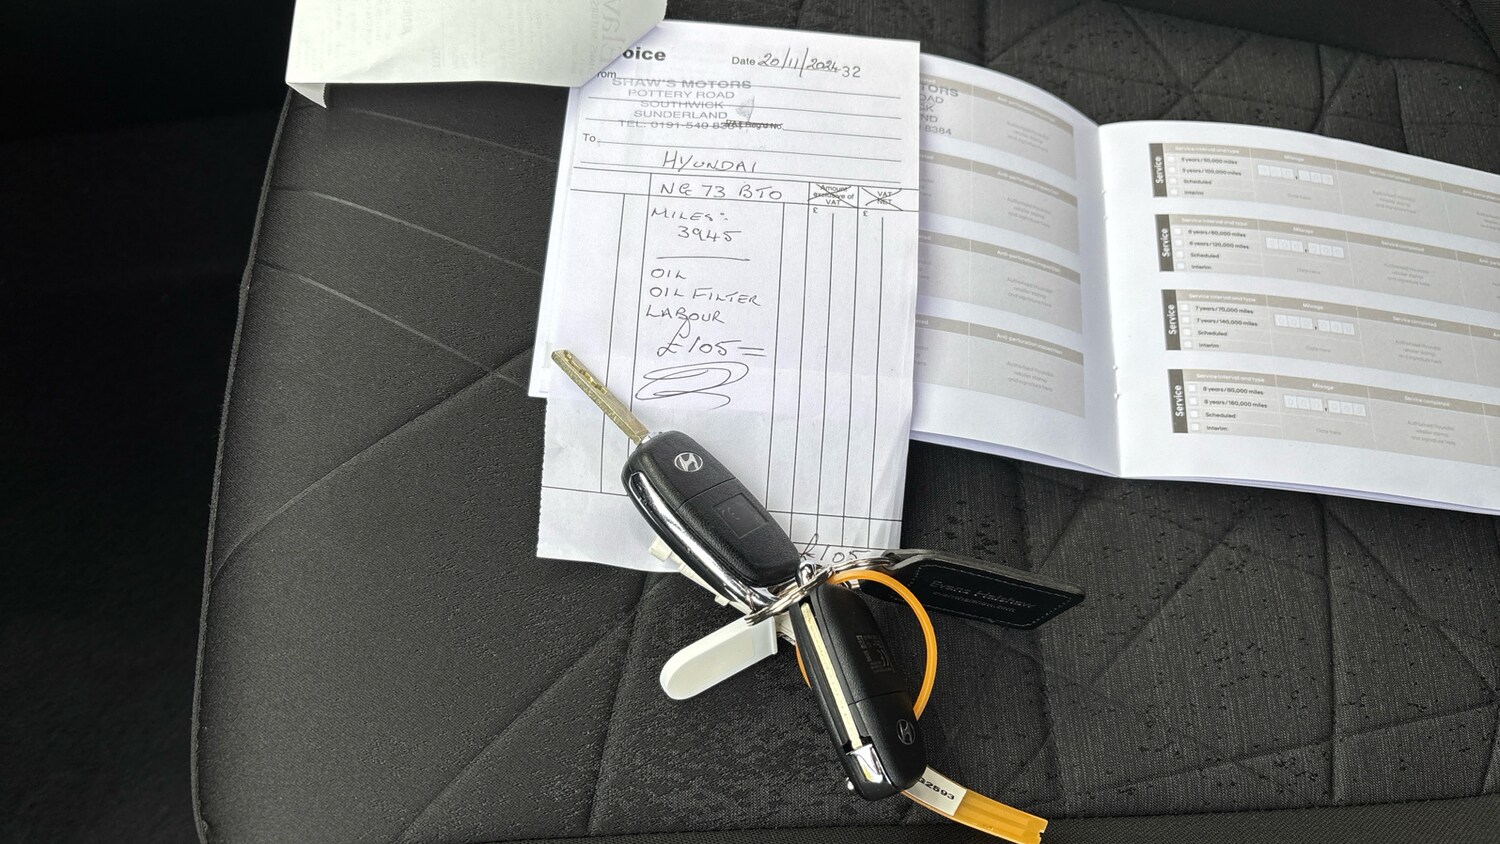 oice
Date 20/11/2024 32
rom
SHAW'S MOTORS
POTTERY ROAD
SOUTHWICK
SUNDERLAND
TEL: 0191-549 8384
VAT Reg'd No.
To
HYUNDAI
NG 73 BTO
Amount exclusive of VAT
VAT NET
£
£
MILES:
3945
OIL
OIL FILTER
LABOUR
£105=
£105
TORS
OAD
CK
D
8384
Service
Service interval and type
Mileage
Service completed
5 years/50,000 miles
5 years/100,000 miles
Scheduled
Interim
Service
Service interval and type
Mileage
Service completed
6 years/60,000 miles
6 years/120,000 miles
Scheduled
Interim
Service
Service interval and type
Mileage
Service completed
7 years/70,000 miles
7 years/140,000 miles
Scheduled
Interim
Service
Service interval and type
Mileage
Service completed
8 years/80,000 miles
8 years/160,000 miles
Scheduled
Interim
Evans Halshaw
evanshalshaw.com
32693